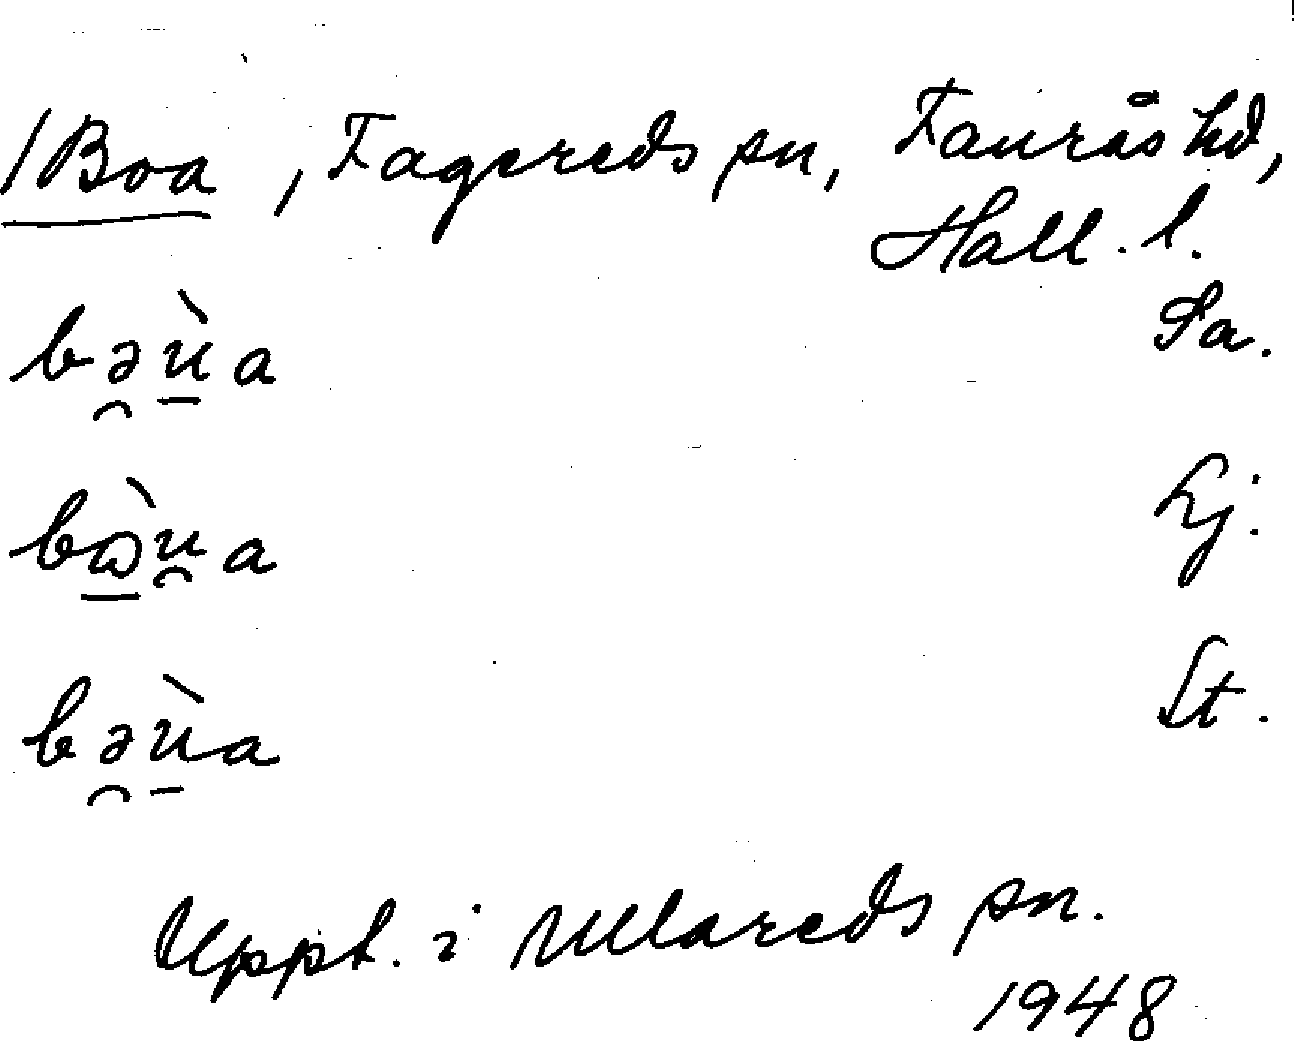 /Boa, Fagereds sn, Faurås hd,
Hall. l.
bə̯ùa Sa.
bɷ̀u̯a Lj.
bə̯ùa St.
Uppt. i Ullareds sn.
1948